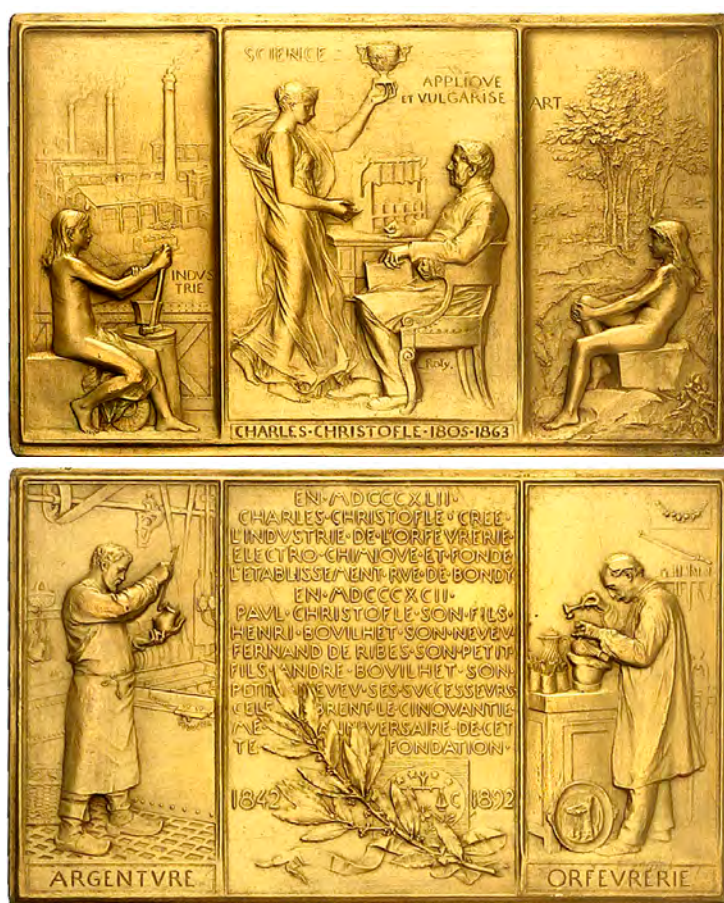 SCIENCE
APPLIQVE
ET VULGARISE
ART
INDVS
TRIE
Roty.
CHARLES·CHRISTOFLE·1805·1863
EN·MDCCCXLII·
CHARLES·CHRISTOFLE·CREE·
L'INDVSTRIE·DE·L'ORFEVRERIE·
ELECTRO·CHIMIQVE·ET·FONDE
L'ETABLISSEMENT·RVE·DE·BONDY
EN·MDCCCXCII·
PAVL·CHRISTOFLE·SON·FILS·
HENRI·BOVILHET·SON·NEVEV
FERNAND·DE·RIBES·SON·PETIT
FILS·ANDRE·BOVILHET·SON·
PETIT NEVEV·SES·SVCCESSEVRS
CELE BRENT·LE·CINQVANTIE
ME ANNIVERSAIRE·DE·CET
TE FONDATION·
1842 1892
C
ARGENTVRE
ORFEVRERIE